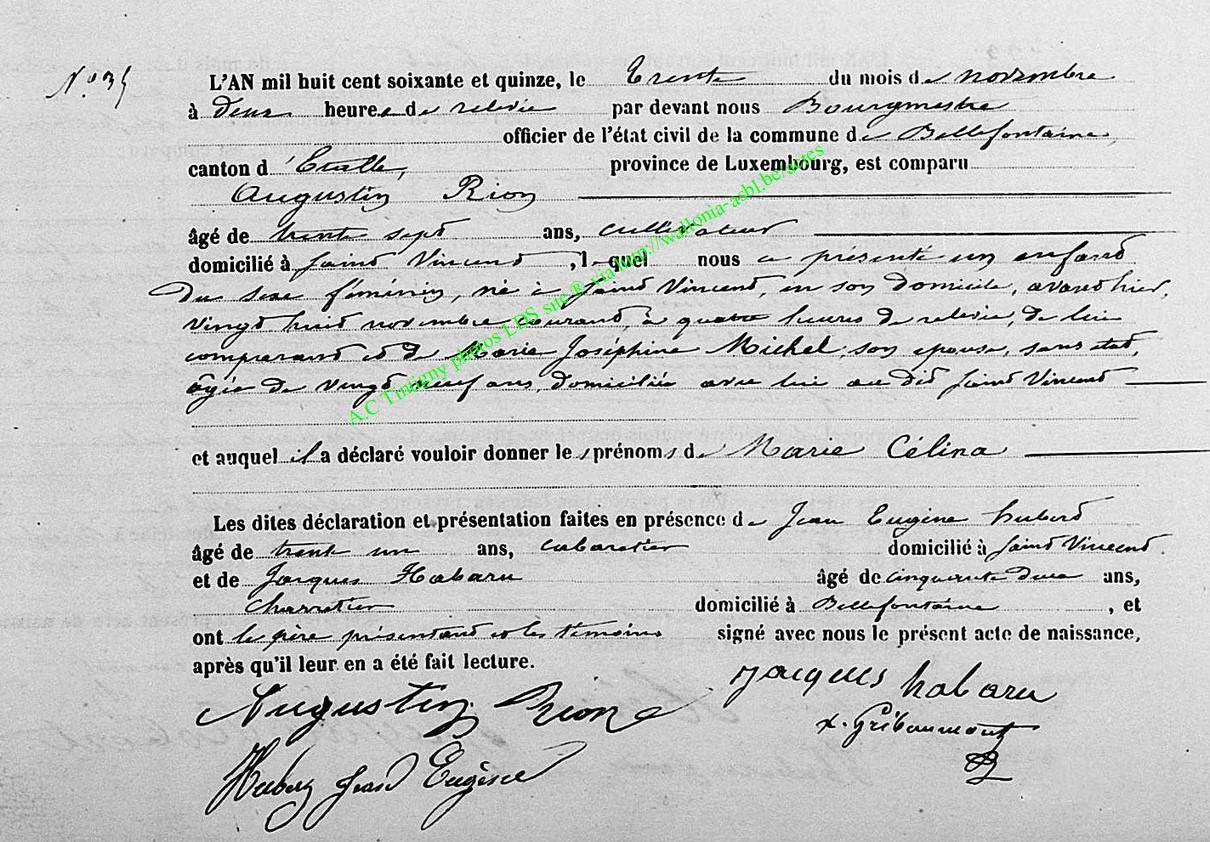 N° 35
L'AN mil huit cent soixante et quinze, le trente du mois de novembre
à deux heures de relevée par devant nous Bourgmestre
officier de l'état civil de la commune de Bellefontaine,
canton d'Etalle, province de Luxembourg, est comparu
Augustin Rion
âgé de trente sept ans, cultivateur
domicilié à Saint Vincent, lequel nous a présenté un enfant
du sexe féminin, né à Saint Vincent, en son domicile, avant hier,
vingt huit novembre courant, à quatre heures de relevée, de lui
comparant et de Marie Joséphine Michel, son épouse, sans état,
âgée de vingt neuf ans, domiciliée avec lui au dit Saint Vincent
et auquel il a déclaré vouloir donner les prénoms de Marie Célina
Les dites déclaration et présentation faites en présence de Jean Eugène Hubert
âgé de trent un ans, cabaretier domicilié à Saint Vincent.
et de Jacques Habaru âgé de cinquante deux ans,
charretier domicilié à Bellefontaine, et
ont le père présentant et les témoins signé avec nous le présent acte de naissance,
après qu'il leur en a été fait lecture.
Augustin Rion
Jacques habaru
x. Gribaumont
Hubert Jean Eugène
A.C Tintigny photos LDS site ® via http://wallonia-asbl.be/actes